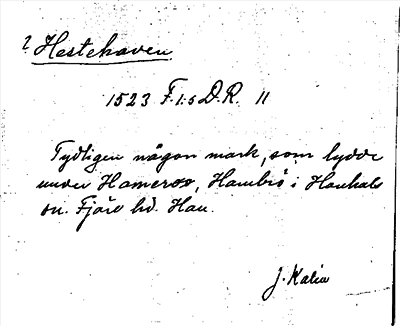 ? Hestehaven
1523 F.1:s D.R. 11
Tydligen någon mark, som lydde
under Hamerøø, Hambö i Hanhals
sn. Fjäre hd. Hall.
J. Kalén